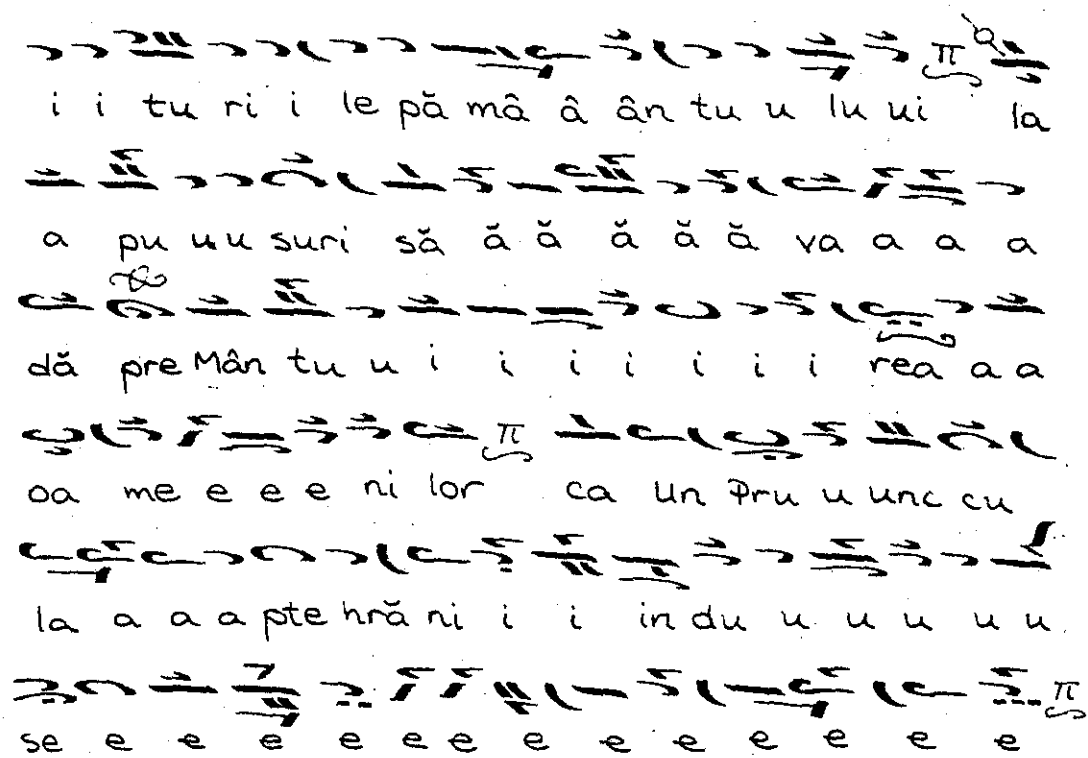 i i tu ri i le pă mâ â ân tu u lu ui la
a pu u u suri să ă ă ă ă ă va a a a
dă pre Mân tu u i i i i i i i rea a a
oa me e e e ni lor ca un Pru u unc cu
la a a a pte hră ni i i in du u u u u u
se e e e e e e e e e e e e e